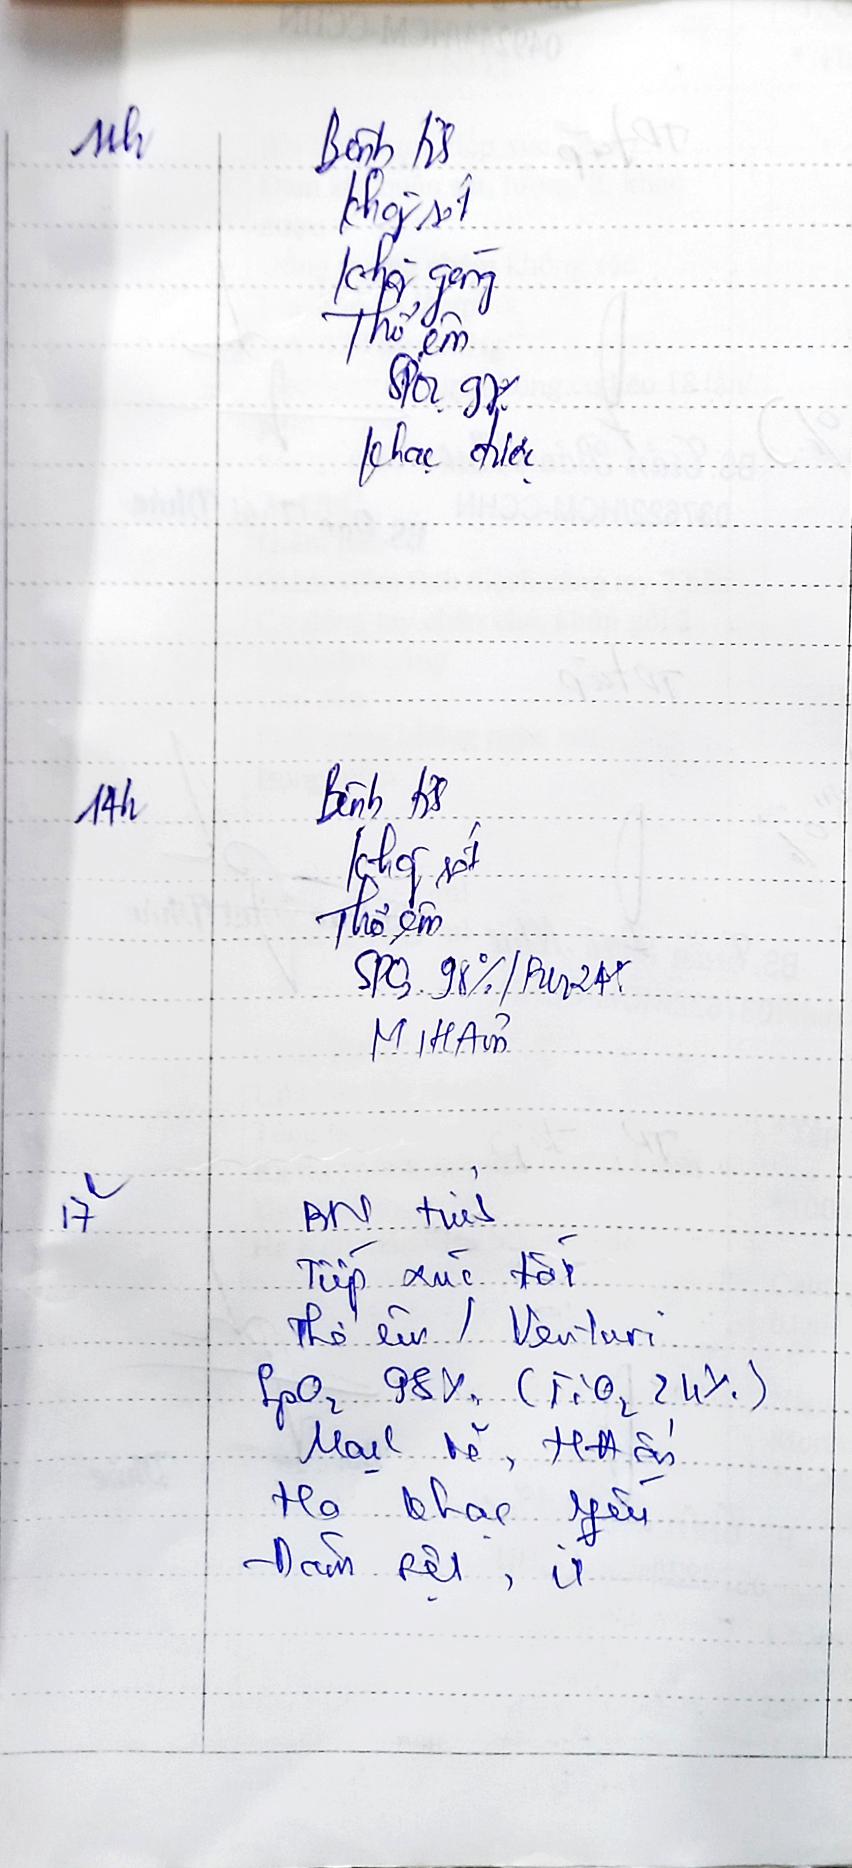 11h
Bệnh tỉnh
Không sốt
Không gồng
Thở êm
SPO2 97%
khạc được
14h
Bệnh tỉnh
Không sốt
Thở êm
SPO2 98% / 24%
M, HA ổn
17h
BN tỉnh
Tiếp xúc tốt
Thở êm / Venturi
SpO2 98% (FiO2 24%)
Mạch rõ, HA ổn
Ho khạc yếu
Đàm sệt, ít